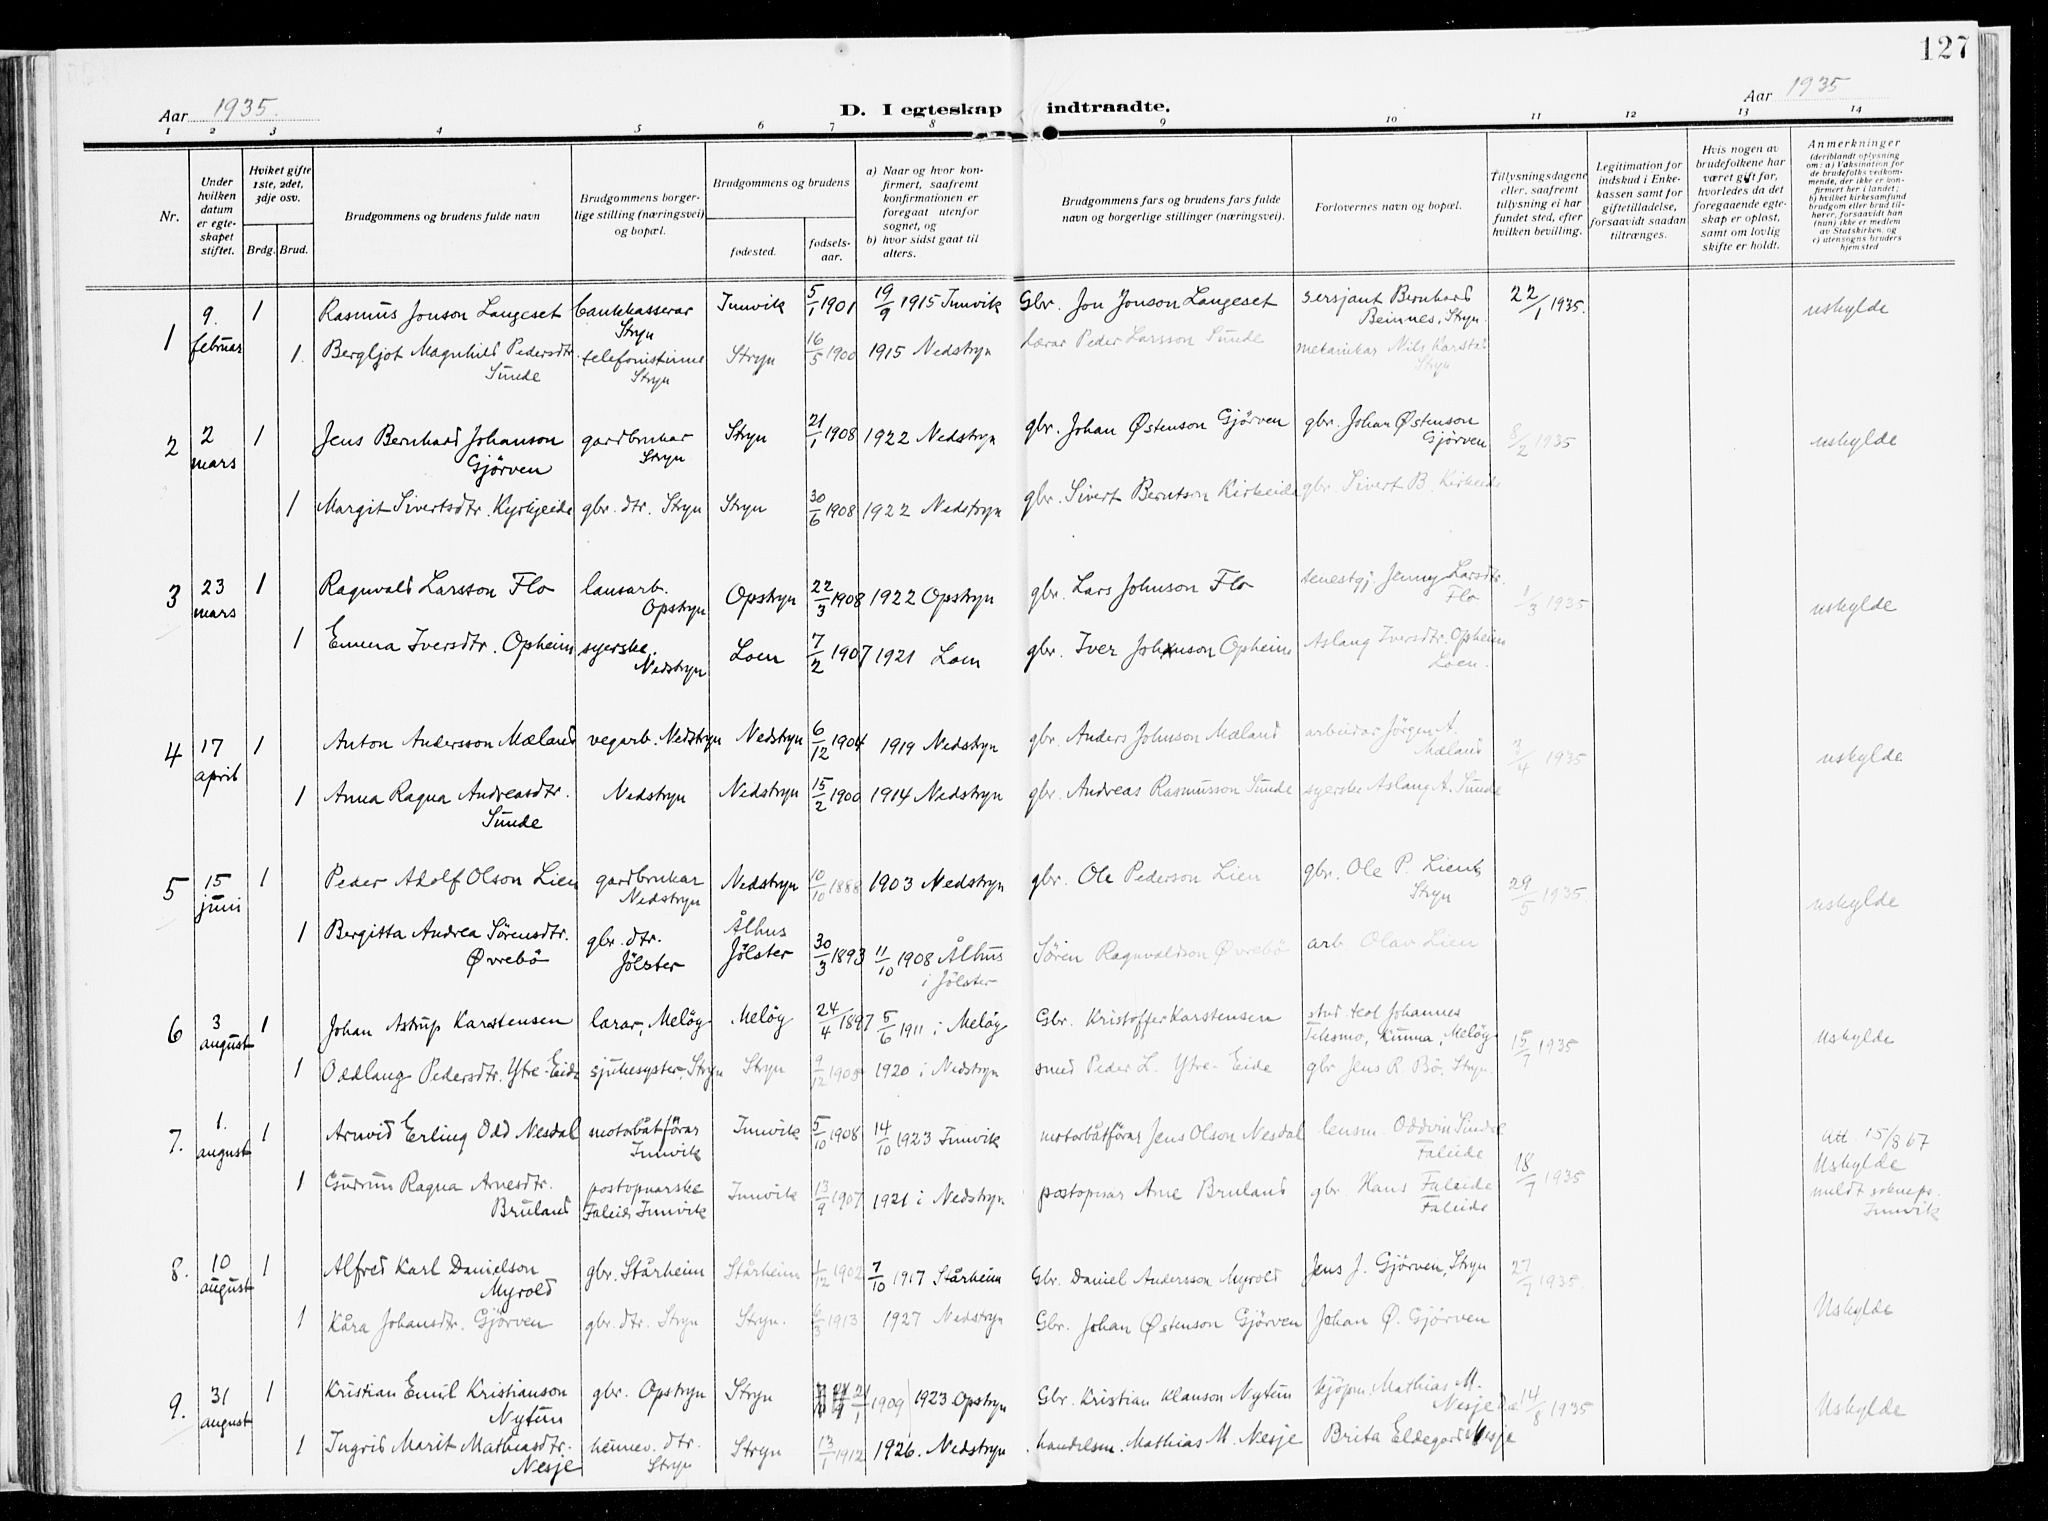 127
Aar 1935.
D. I egteskap indtraadte.
Aar 1935
1 2 3 4 5 6 7 8 9 10 11 12 13 14
Nr.
Under hvilken datum er egteskapet stiftet.
Hvilket gifte 1ste, 2det, 3dje osv.
Brdg. Brud.
Brudgommens og brudens fulde navn
Brudgommens borgerlige stilling (næringsvei) og bopæl.
Brudgommens og brudens
fødested.
fødselsaar.
a) Naar og hvor konfirmert, saafremt konfirmationen er foregaat utenfor sognet, og
b) hvor sidst gaat til alters.
Brudgommens fars og brudens fars fulde navn og borgerlige stillinger (næringsvei).
Forlovernes navn og bopæl.
Tillysningsdagene eller, saafremt tillysning ei har fundet sted, efter hvilken bevilling.
Legitimation for indskud i Enkekassen samt for giftetilladelse, forsaavidt saadan tiltrænges.
Hvis nogen av brudefolkene har været gift før, hvorledes da det foregaaende egteskap er opløst, samt om lovlig skifte er holdt.
Anmerkninger
(deriblandt oplysning om: a) Vaksination for de brudefolks vedkommende, der ikke er konfirmert her i landet; b) hvilket kirkesamfund brudgom eller brud tilhører, forsaavidt han (hun) ikke er medlem av Statskirken, og c) utensogns bruders hjemsted
1 9. februar 1 Rasmus Jonson Langeset bankkasserar Stryn Innvik 5/1 1901 19/9 1915 Innvik Gbr. Jon Jonson Langeset sersjant Bernhard Beinnes, Stryn. 22/1 1935. uskylde
1. Bergljot Magnhild Pedersdtr. Sunde telefonistinne Stryn Stryn 16/5 1900 1915 Nedstryn lærar Peder Larsson Sunde mekanikar Nils Karstad Stryn
2 2 mars 1 Jens Bernhard Johanson Gjörven gardbrukar Stryn Stryn 21/1 1908 1922 Nedstryn gbr. Johan Østenson Gjörven gbr. Johan Østenson Gjörven 8/2 1935 uskylde
1 Margit Sivertsdtr. Kyrkjeeide gbr. dtr. Stryn Stryn 30/6 1908 1922 Nedstryn gbr. Sivert Berntson Kirkeide gbr Sivert B. Kirkeide
3 23 mars 1 Ragnvald Larsson Flo lausarb. Opstryn Opstryn 22/3 1908 1922 Opstryn gbr. Lars Johnson Flo tenestgj. Jenny Larsdtr. Flo 1/3 1935 uskylde
1 Emma Iversdtr. Opheim syerske. Nedstryn Loen 7/2 1907 1921 Loen gbr. Iver Johnson Opheim Aslaug Iversdtr. Opheim Loen.
4 17 april 1 Anton Andersson Mæland vegarb. Nedstryn Nedstryn 6/12 1904 1919 Nedstryn gbr. Anders Johnson Mæland arbeidar Jörgen A. Mæland 3/4 1935 uskylde
1 Anna Ragna Andreasdtr. Sunde Nedstryn Nedstryn 15/2 1900 1914 Nedstryn gbr. Andreas Rasmusson Sunde syerske Aslaug A. Sunde
5 15 juni 1 Peder Adolf Olson Lien gardbrukar Nedstryn Nedstryn 10/10 1888 1903 Nedstryn gbr. Ole Pederson Lien gbr. Ole P. Lien, Stryn 29/5 1935. uskylde
1 Bergitta Andrea Sörensdtr. Øvrebö gbr. dtr. Jölster Ålhus Jölster 30/3 1893 11/10 1908 Ålhus i Jölster Sören Ragnvaldson Øvrebö arb. Olav Lien
6 3 august 1 Johan Astrup Karstensen lærar, Melöy Melöy 24/4 1897 5/6 1911 i Melöy Gbr. Kristoffer Karstensen stud. teol Johannes Telesmo, Kunna, Melöy 15/7 1935 Uskylde
1 Oddlaug Pedersdtr. Ytre-Eide sjukesyster, Stryn Stryn 9/12 1905 1920 i Nedstryn smed Peder L. Ytre-Eide gbr Jens R. Bö, Stryn.
7. 1. august 1 Arnvid Erling Odd Nesdal motorbåtförar Innvik Innvik 5/10 1908 14/10 1923 Innvik motorbåtförar Jens Olson Nesdal lensm. Oddvin Sindre Faleide 18/7 1935 Att. 15/8 67 Uskylde
1 Gudrun Ragna Arnesdtr. Bruland postopnarske Faleide Innvik Innvik 13/9 1907 1921 i Nedstryn postopnar Arne Bruland gbr. Hans Faleide Faleide meldt soknepr. Innvik
8. 10 august 1 Alfred Karl Danielson Myrold gbr. Stårheim Stårheim 1/12 1902 7/10 1917 Stårheim Gbr. Daniel Andersson Myrold Jens J. Gjörven, Stryn 27/7 1935. Uskylde
1 Kåra Johansdtr. Gjörven gbr. dtr. Stryn Stryn. 6/3 1913 1927 Nedstryn Gbr. Johan Østenson Gjörven Johan Ø. Gjörven
9. 31 august 1 Kristian Emil Kristianson Nytun gbr. Opstryn Stryn 21/1 1909 1923 Opstryn Gbr. Kristian Klauson Nytun kjöpm. Mathias M. Nesje 14/8 1935 Uskylde
1 Ingrid Marit Mathiasdtr. Nesje heimev. dtr. Stryn Stryn 13/1 1912 1926. Nedstryn handelsm. Mathias M. Nesje Brita Eldegard Nesje